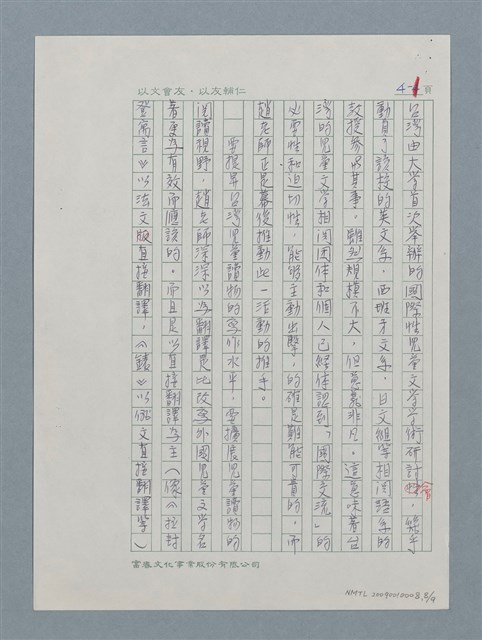 以文會友・以友輔仁
4-4頁
台灣由大學首次舉辦的國際性兒童文學學術研討會,幾乎
動員了該校的英文系、西班牙文系、日文組等相關語系的
教授參與其事。雖然規模不大,但意義非凡。這意味著台
灣的兒童文學相關團体和個人已經体認到「國際交流」的
必要性和迫切性,能夠主動出擊,的確是難能可貴的。而
趙老師正是幕後推動此一活動的推手。
要提昇台灣兒童讀物的寫作水平,要擴展兒童讀物的
閱讀視野,趙老師深深以為翻譯是比改寫外國兒童文學名
著更為有效而應該的。而且是以直接翻譯為主(像《拉封
登寓言》以法文版直接翻譯,《錶》以俄文直接翻譯等)
富春文化事業股份有限公司
NMTL 20090010008.8/9